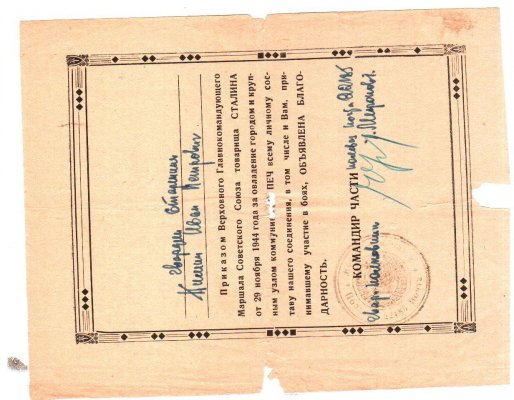 гвардии старшина
Иван Петрович
Приказом Верховного Главнокомандующего
Маршала Советского Союза товарища СТАЛИНА
от 29 ноября 1944 года за овладение городом и круп-
ным узлом коммуни ПЕЧ всему личному сос-
таву нашего соединения, в том числе и Вам, при-
нимавшему участие в боях, ОБЪЯВЛЕНА БЛАГО-
ДАРНОСТЬ.
КОМАНДИР ЧАСТИ